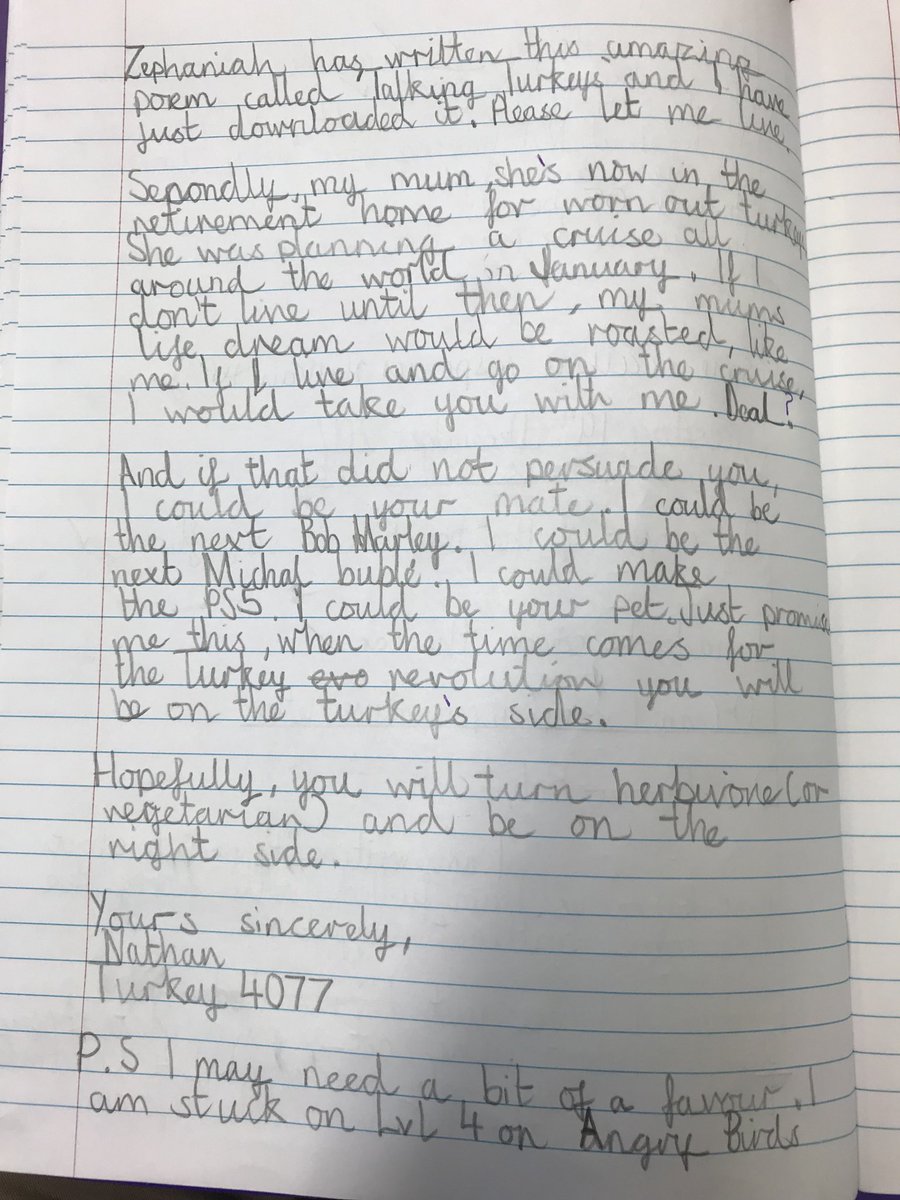 Zephaniah has written this amazing
poem called Talking Turkeys and I have
just downloaded it. Please let me live.
Secondly, my mum, she's now in the
retirement home for worn out turkeys
She was planning a cruise all
around the world in January. If I
don't live until then, my mums
life dream would be roasted, like
me. If I live and go on the cruise,
I would take you with me. Deal?
And if that did not persuade you,
I could be your mate. I could be
the next Bob Marley. I could be the
next Michal bublé. I could make
the PS5. I could be your pet. Just promise
me this, when the time comes for
the Turkey evo revolution you will
be on the turkey's side.
Hopefully, you will turn herbivore (or
vegetarian) and be on the
right side.
Yours sincerely,
Nathan
Turkey 4077
P.S I may need a bit of a favour. I
am stuck on Lvl 4 on Angry Birds